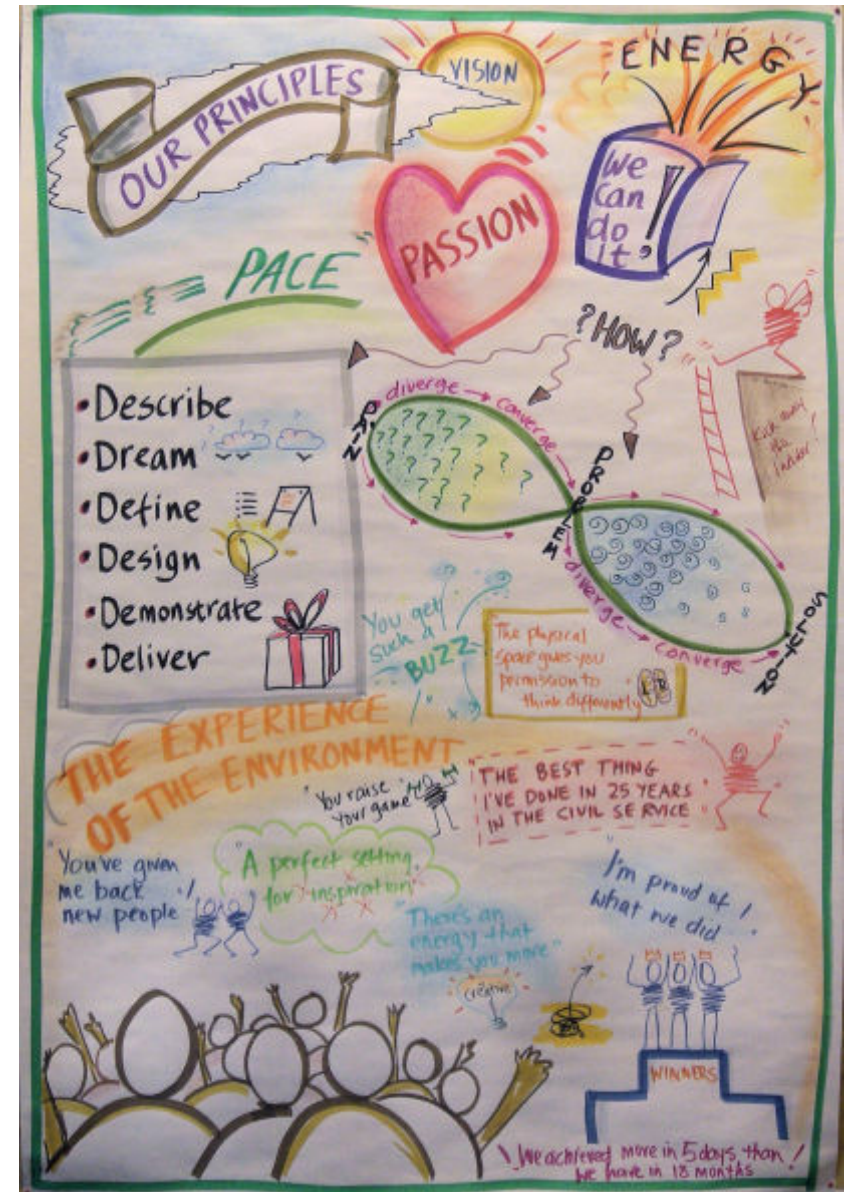 OUR PRINCIPLES
VISION
ENERGY
We
can
do
it!
PASSION
PACE
?HOW?
• Describe
• Dream
• Define
• Design
• Demonstrate
• Deliver
PAIN
diverge
converge
PROBLEM
diverge
converge
SOLUTION
Kick away
the
ladder!
You get
such a
BUZZ
The physical
space gives you
permission to
think differently
L R
THE EXPERIENCE
OF THE ENVIRONMENT
"You raise
your game"
"THE BEST THING
I'VE DONE IN 25 YEARS
IN THE CIVIL SERVICE"
"You've given
me back
new people!"
"A perfect setting
for inspiration"
"There's an
energy that
makes you more"
creative
"I'm proud of
what we did!"
WINNERS
We achieved more in 5 days than
we have in 18 months!